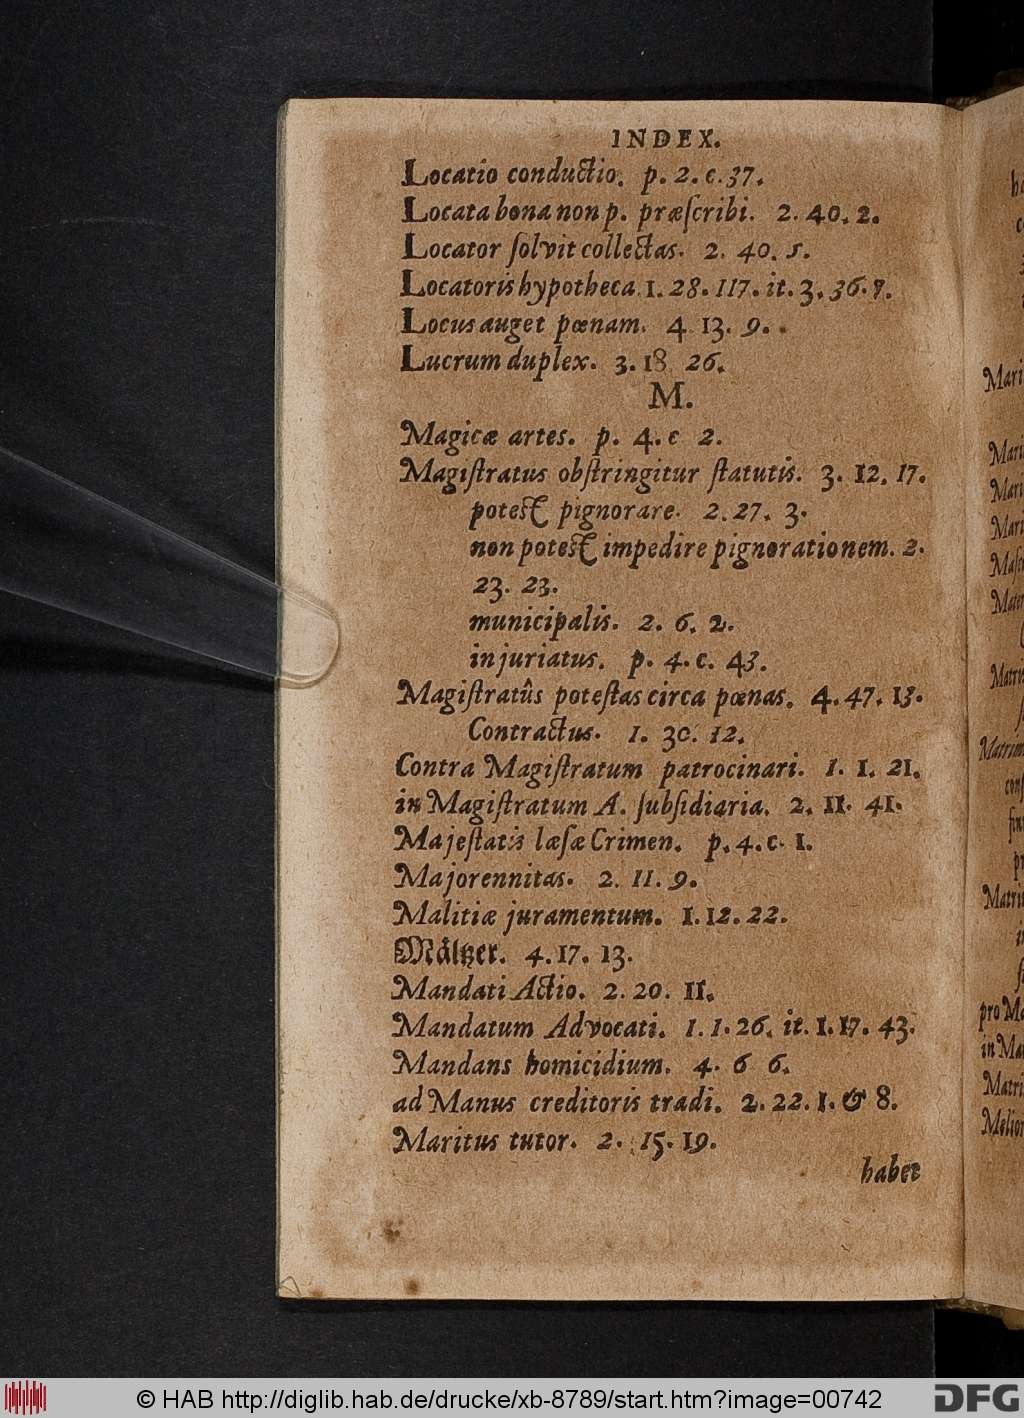 INDEX.
Locatio conductio. p. 2. c. 37.
Locata bona non p. præſcribi. 2. 40. 2.
Locator ſolvit collectas. 2. 40. 5.
Locatoris hypotheca. 1. 28. 117. it. 3. 36. 8.
Locus auget pœnam. 4 13. 9.
Lucrum duplex. 3. 18 26.
M.
Magicæ artes. p. 4. c 2.
Magiſtratus obſtringitur ſtatutis. 3. 12. 17.
potest pignorare. 2. 27. 3.
non potest impedire pignorationem. 2.
23. 23.
municipalis. 2. 6. 2.
injuriatus. p. 4. c. 43.
Magiſtratûs poteſtas circa pœnas. 4. 47. 13.
Contractus. 1. 30. 12.
Contra Magiſtratum patrocinari. 1. 1. 21.
in Magiſtratum A. ſubſidiaria. 2. 11. 41.
Majeſtatis læſæ Crimen. p. 4. c. 1.
Majorennitas. 2. 11. 9.
Malitiæ juramentum. 1. 12. 22.
Mältzer. 4. 17. 13.
Mandati Actio. 2. 20. 11.
Mandatum Advocati. 1. 1. 26. it. 1. 17. 43.
Mandans homicidium. 4. 6 6.
ad Manus creditoris tradi. 2. 22. 1. & 8.
Maritus tutor. 2. 15. 19.
habet
© HAB http://diglib.hab.de/drucke/xb-8789/start.htm?image=00742
DFG